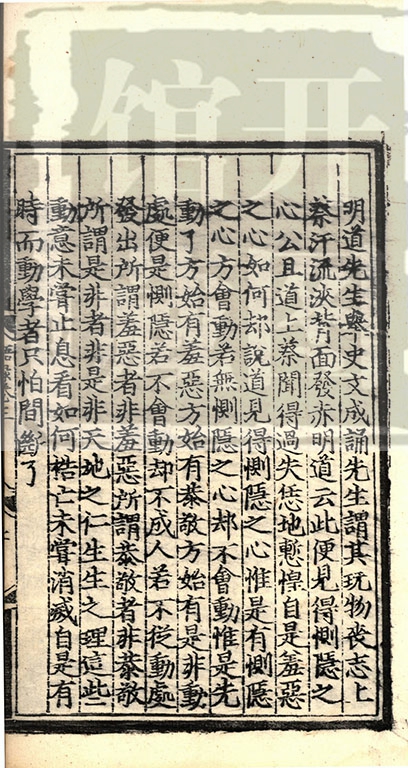 明道先生舉史文成誦先生謂其玩物喪志上
蔡汗流浹背面發赤明道云此便見得惻隱之
心公且道上蔡聞得過失恁地慙惶自是羞惡
之心如何却說道見得惻隱之心惟是有惻隱
之心方會動若無惻隱之心却不會動惟是先
動了方始有羞惡方始有恭敬方始有是非動
處便是惻隱若不會動却不成人若不從動處
發出所謂羞惡者非羞惡所謂恭敬者非恭敬
所謂是非者非是非天地之仁生生之理這些
動意未嘗止息看如何梏亡未嘗消滅自是有
時而動學者只怕間斷了
开馆